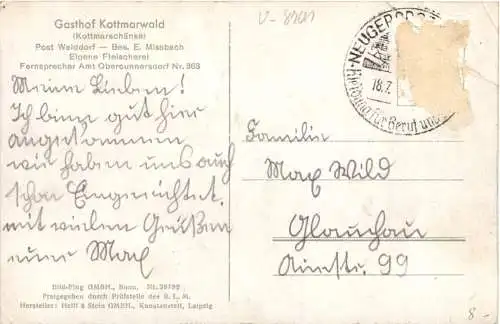 Gasthof Kottmarwald
(Kottmarschänke)
Post Walddorf — Bes. E. Missbach
Eigene Fleischerei
Fernsprecher Amt Obercunnersdorf Nr. 363
Meine Lieben!
Ich bin gut hier
angekommen
wir haben uns auch
schon Eingerichtet.
mit vielen Grüßen
euer Max
Bild-Flug GMBH., Nr. 39792
Freigegeben durch Prüfstelle des R. L. M.
Hersteller: Helff & Stein GMBH., Kunstanstalt, Leipzig
NEUGERSDORF
18.7.
Kleidung für Beruf und
Familie
Max Wild
Glauchau
99
8.-